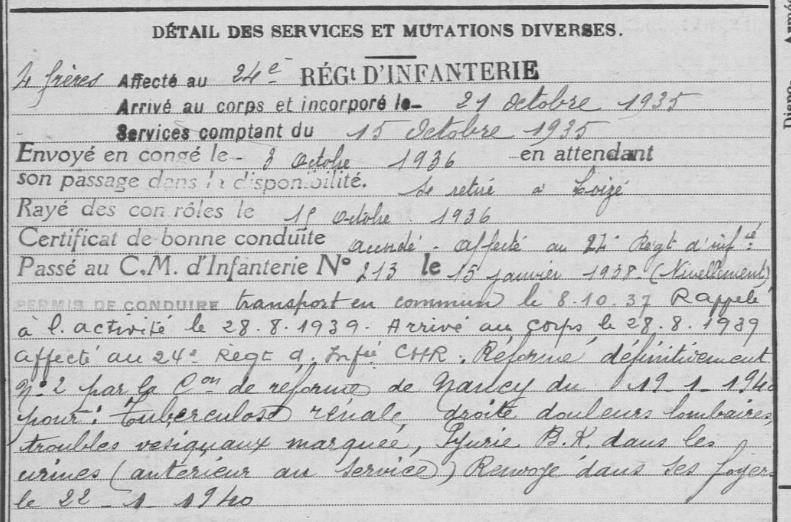 DÉTAIL DES SERVICES ET MUTATIONS DIVERSES.
4 frères Affecté au 24e RÉGt D'INFANTERIE
Arrivé au corps et incorporé le 21 Octobre 1935
Services comptant du 15 Octobre 1935
Envoyé en congé le 3 octobre 1936 en attendant
son passage dans la disponibilité. Se retire à Loizé
Rayé des contrôles le 15 octobre 1936
Certificat de bonne conduite accordé - affecté au 24e Régt d'infie
Passé au C.M. d'Infanterie No 213 le 15 janvier 1938 (Nivellement)
PERMIS DE CONDUIRE transport en commun le 8.10.37 Rappelé
à l'activité le 28.8.1939. Arrivé au corps le 28.8.1939
affecté au 24e Régt d'Infie CHR. Réformé définitivement
No 2 par la Con de réforme de Nancy du 19-1-1940
pour : tuberculose rénale droite douleurs lombaires,
troubles vesiquaux marqueé, Pyurie B.K. dans les
urines (antérieur au service) Renvoyé dans ses foyers
le 22-1-1940